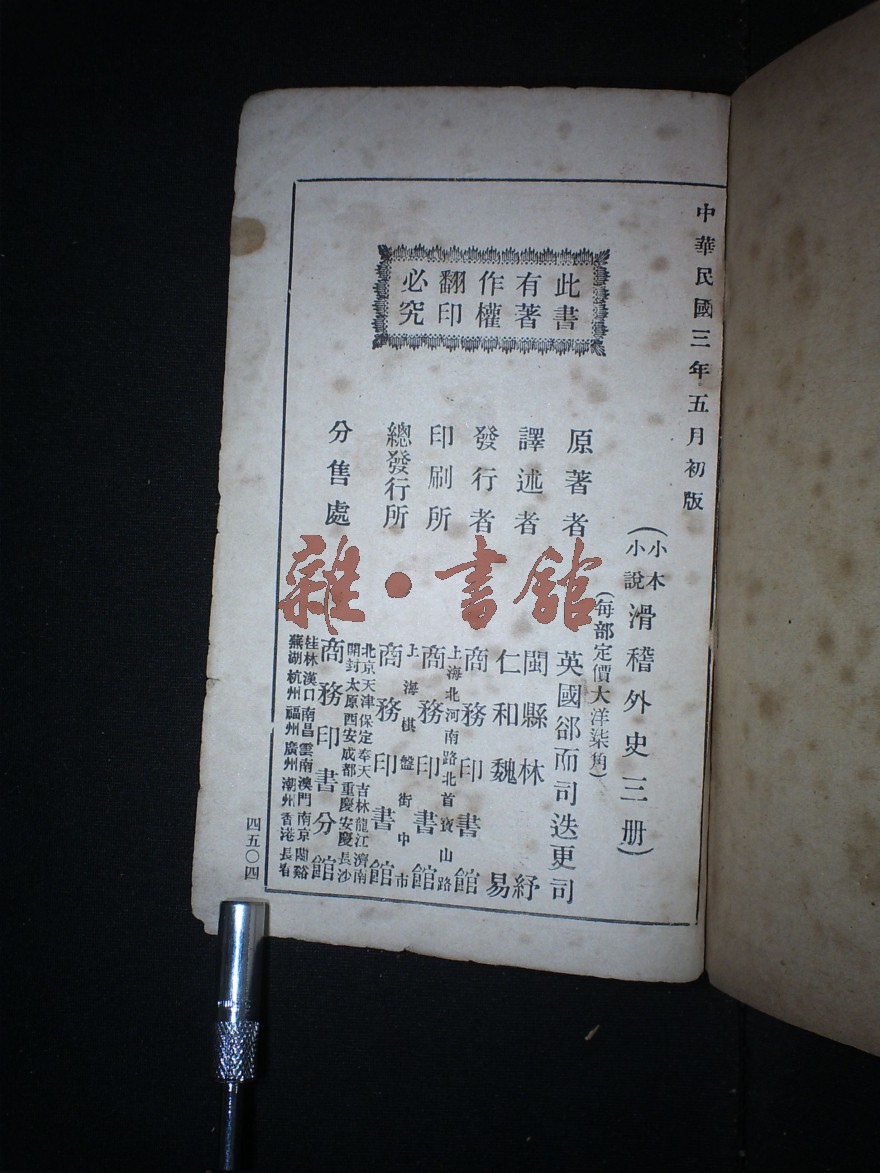 中華民國三年五月初版
此書
有著
作權
翻印
必究
(小本小說 滑稽外史三册)
(每部定價大洋柒角)
原著者 英國卻而司迭更司
譯述者 閩縣林紓
仁和魏易
發行者 商務印書館
印刷所 上海北河南路北首寶山路
商務印書館
總發行所 上海棋盤街中市
商務印書館
分售處 北京天津保定奉天吉林龍江濟南
開封太原西安成都重慶安慶長沙
商務印書分館
桂林漢口南昌雲南澳門南京
蕪湖杭州福州廣州潮州香港
四五〇四
雜·書館